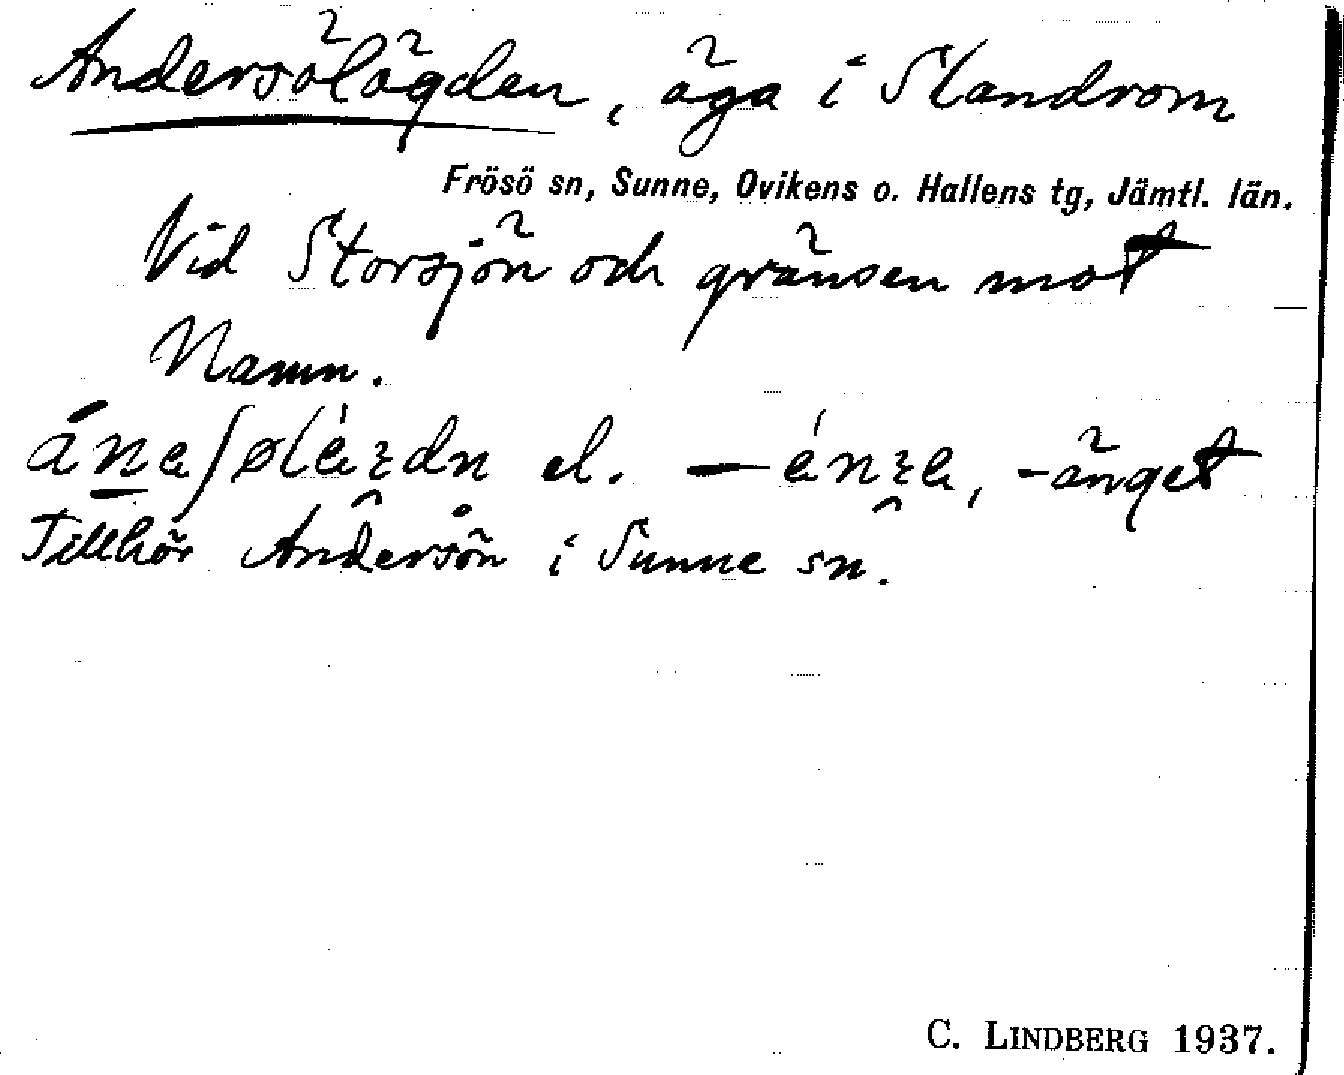 Andersölägden, äga i Slandrom
Frösö sn, Sunne, Ovikens o. Hallens tg, Jämtl. län.
Vid Storsjön och gränsen mot
Namn.
el. -änget
Tillhör Andersön i Sunne sn.
C. LINDBERG 1937.